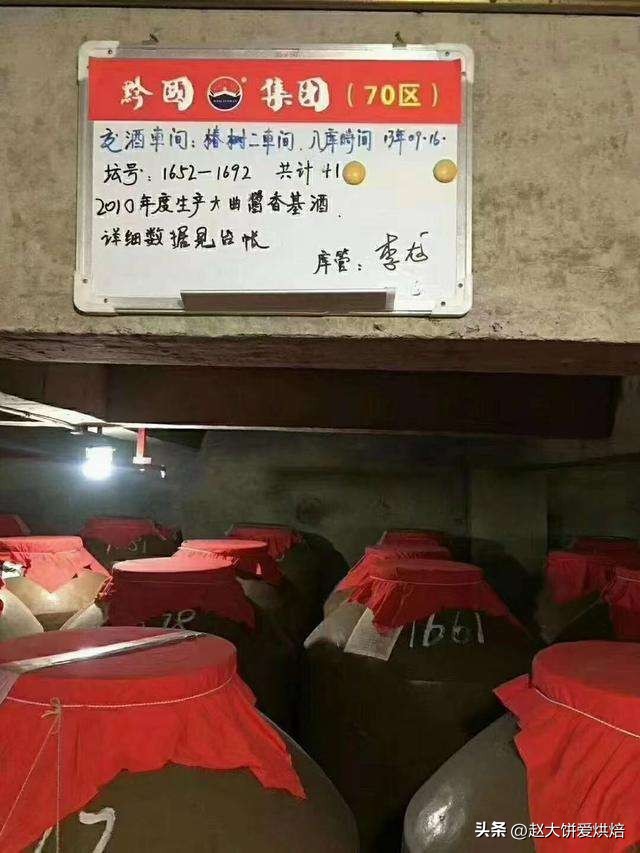 黔國 集团（70区）
交酒車间：椿树二車间. 入库時间 13年09.16.
坛号：1652—1692 共计41
2010年度生产大曲酱香基酒.
详细数据见台帐
库管：李
1661
78
17
头条 @赵大饼爱烘焙